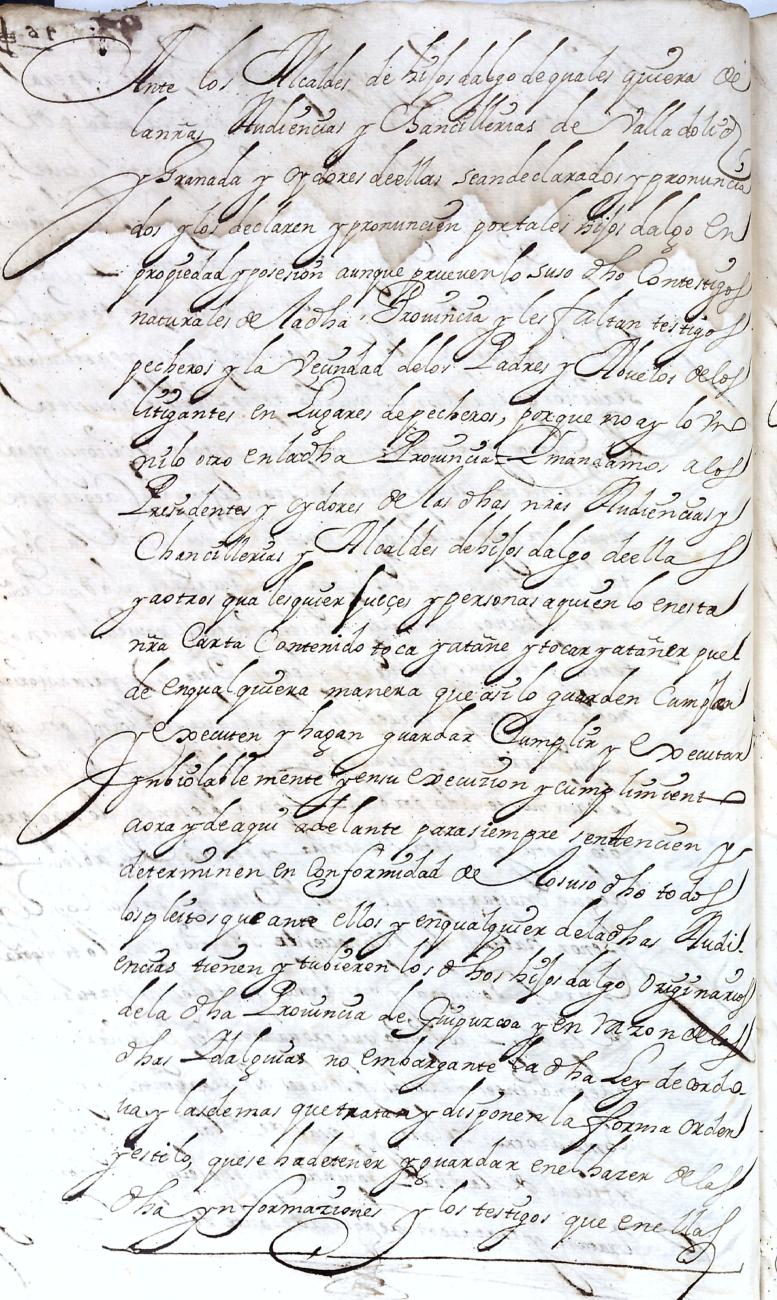 Ante los Alcaldes de hijos dalgo de quales quiera de
las nrãs Audiencias y Chancillerias de Valladolid
y Granada y oydores deellas seandeclarados y pronuncia
dos y los declaren y pronuncien por tales hijos dalgo En
propiedad y posesion aunque prueven lo suso dho Contestigos
naturales de la dha Provincia y les faltan testigos
pecheros y la Vecindad delos Padres y Abuelos delos
litigantes en Lugares depecheros, porque no ay lo Vno
nilo otro enladha Provincia Y mandamos alos
Presidentes y oydores de las dhas nrãs Audiencias y
Chancillerias y Alcaldes dehijos dalgo deellas
y aotros qua lesquier Jueçes y personas aquien lo enesta
nrã Carta Contenido toca yatañe y tocar yatañer pue
de enqualquiera manera que asi lo guarden Cumplan
y Executen y hagan guardar Cumplir y Executar
ynbiolable mente yensu execuzion y cumplimiento
aora y deaqui adelante parasiempre sentencien y
determinen en Conformidad de lo suso dho todos
los pleitos que ante ellos y enqualquier deladhas Audi
encias tienen y tubieren los dhos hijos dalgo originarios
dela dha Provincia de Guipuzcoa y en razon delas
dhas Ydalguias no embargante la dha Ley de cordo
ua y lasdemas que tratan y disponen la forma orden
yestilo, quese hadetener y guardar enel hazer delas
dha ynformaziones y los testigos que enellas